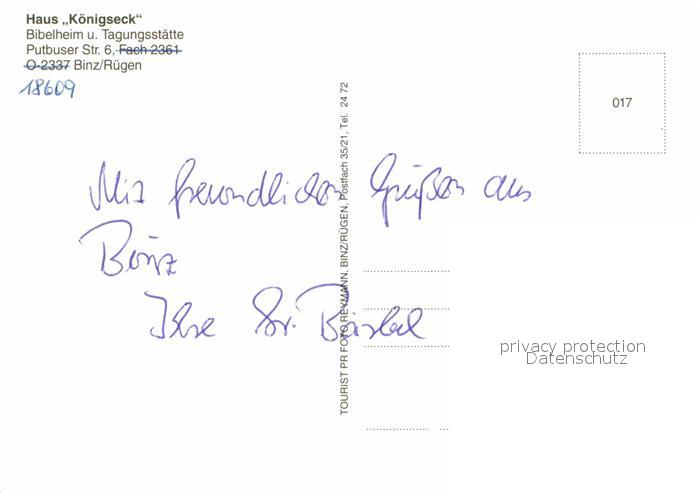 Haus „Königseck“
Bibelheim u. Tagungsstätte
Putbuser Str. 6, Fach 2361
O-2337 Binz/Rügen
18609
017
TOURIST PR FOTO REYMANN, BINZ/RÜGEN, Postfach 35/21, Tel. 24 72
Mit freundlichen Grüßen aus
Binz
Ihre Sr. Bärbel
privacy protection
Datenschutz